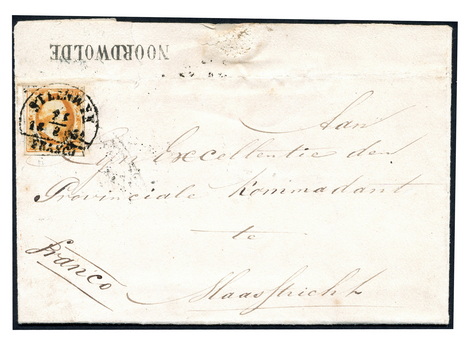 NOORDWOLDE
STEENWYK
Aan
Zijn Excellentie den
Provinciale Kommadant
te
Maastricht
franco